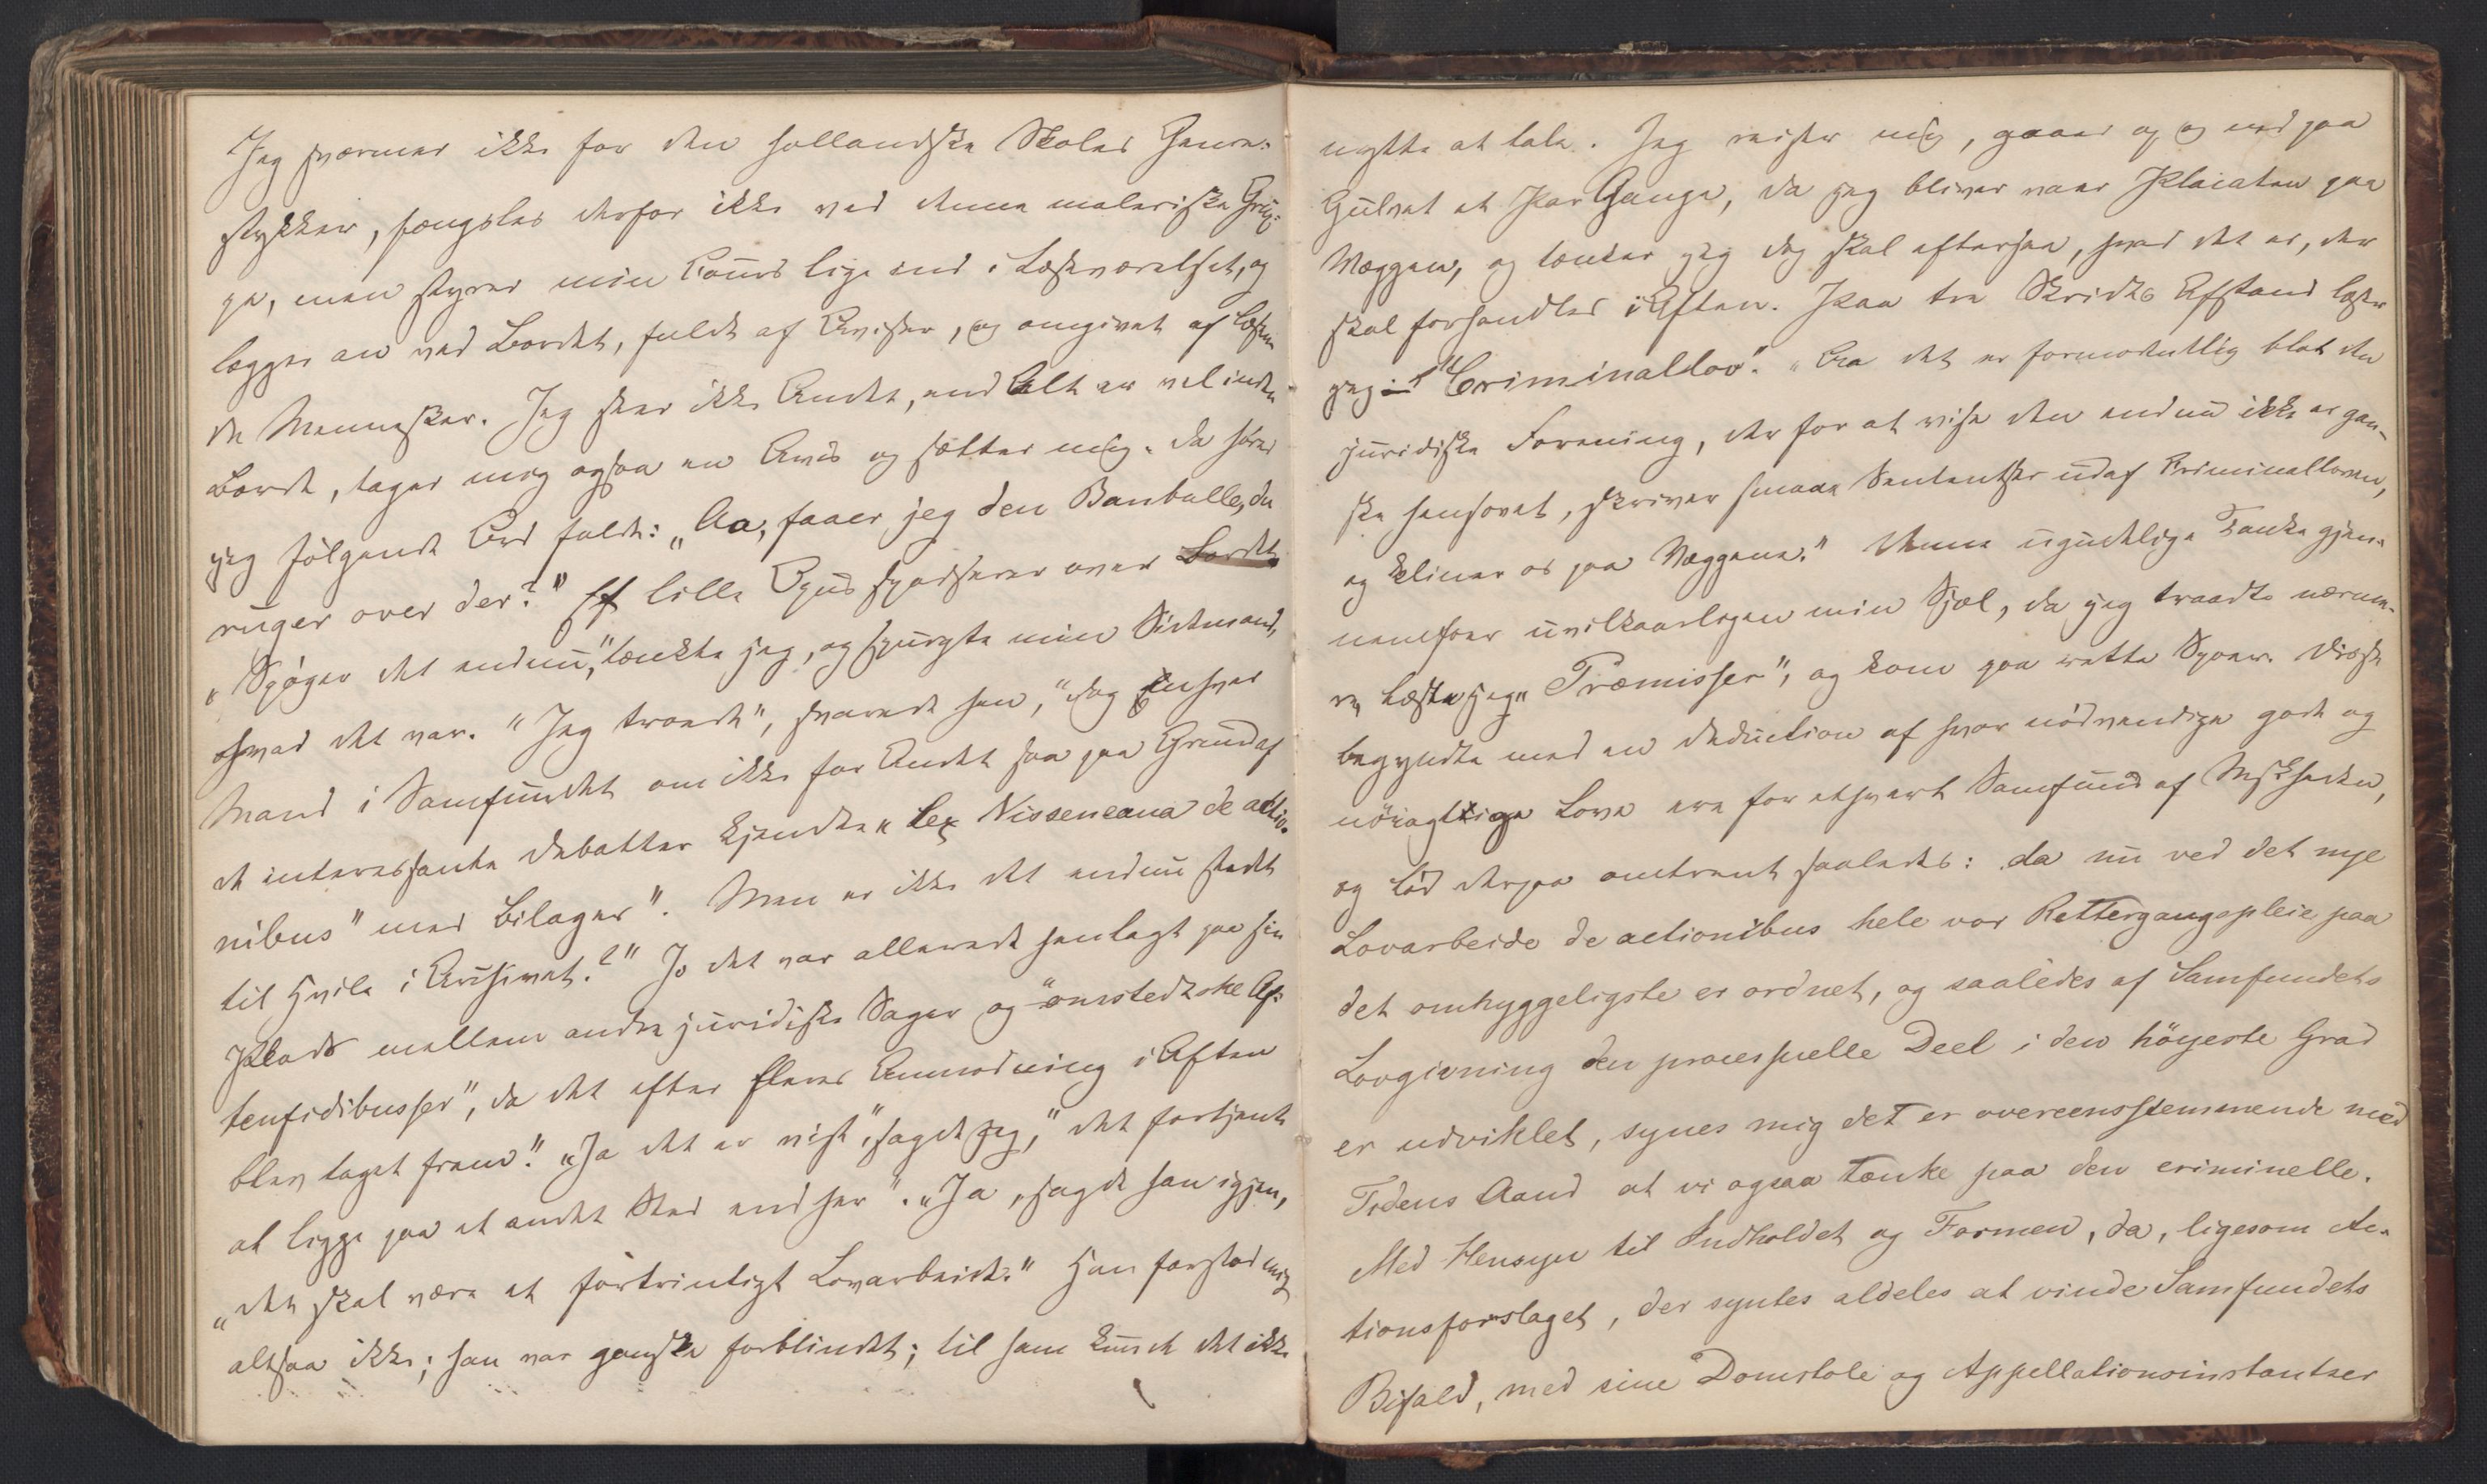 Jeg sværmer ikke for den hollandske Skoles Genre-
stykker, fængsles derfor ikke ved denne maleriske Grup-
pe, men styrer min Cours lige ind i Læseværelset, og
lægger an ved Bordet, fuldt af Aviser, og omgivet af læsen-
de Mennesker. Jeg seer ikke Andet, end Alt er vel inden
Borde, tager mig ogsaa en Avis og sætter mig. Da hører
jeg følgende Ord falde: „Aa, faaer jeg den Banballe, du
ruger over der?" Et lille Opus spadserer over Bordet.
„Spøger det endnu," tænkte jeg, og spurgte min Sidemand,
hvad det var. "Jeg troede", svarede han, "dog Enhver
Mand i Samfundet om ikke for Andet saa paa Grund af
de interessante Debatter kjendte „Lex Nisseneana de actio-
nibus" med Bilager". Men er ikke det endnu stedt
til Hvile i Archivet?" Jo det var allerede henlagt paa sin
Plads mellem andre juridiske Sager og "önsstedtske Af-
tenfidibusser", da det efter fleres Anmodning i Aften
blev taget frem." „Ja det er vist", sagde jeg, "det fortjente
at ligge paa et andet Sted end her". „Ja, sagde han igjen,
„det skal være et fortrinligt Lovarbeide." Han forstod mig
altsaa ikke; han var ganske forblindet; til ham kunde det ikke
nytte at tale. Jeg reiste mig, gaaer op og ned paa
Gulvet et Par Gange, da jeg bliver vaer Placaten paa
Væggen, og tænker jeg dog skal eftersee, hvad det er, der
skal forhandles i Aften. Paa tre Skridts Afstand læser
jeg: "Criminallov". "Aa det er formodentlig blot den
juridiske Forening, der for at vise den endnu ikke er gan-
ske hensovet, skriver smaae Sententser ud af Criminalloven,
og kliner os paa Væggene." Denne ugudelige Tanke gjen-
nemfoer uvilkaarligen min Sjæl, da jeg traadte nærme-
re, læste jeg „Præmisser", og kom paa rette Spoer. Disse
begyndte med en Deduction af hvor nödvendige gode og
nöiagtige Love ere for ethvert Samfund af Mskheden,
og lød derpaa omtrent saaledes: da nu ved det nye
Lovarbeide de actionibus hele vor Rettergangspleie paa
det omhyggeligste er ordnet, og saaledes af Samfundets
Lovgivning den processuelle Deel i den höyeste Grad
er udviklet, synes mig det er overeensstemmende med
Tidens Aand at vi ogsaa tænke paa den criminelle.
Med Hensyn til Indholdet og Formen, da, ligesom Ac-
tionsforslaget, der syntes aldeles at vinde Samfundets
Bifald, med sine Domstole og Appellationsinstantser